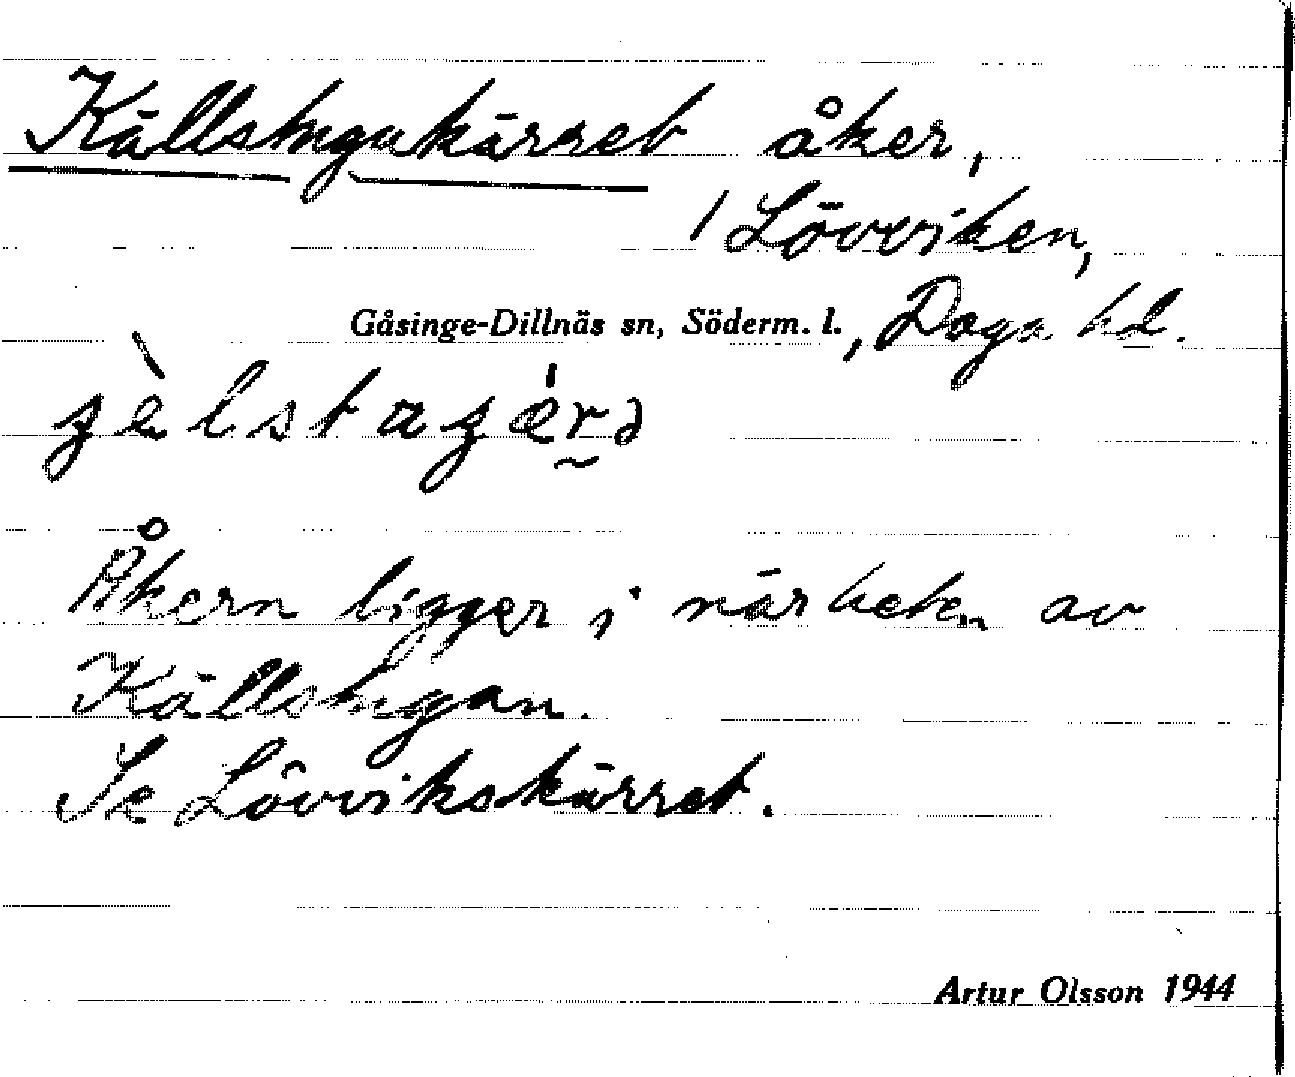 Källstugukärret åker,
/ Lövviken,
Gåsinge-Dillnäs sn, Söderm. l., Daga hd.
Åkern ligger i närheten av
Källstugan.
Se Lövvikskärret.
Artur Olsson 1944